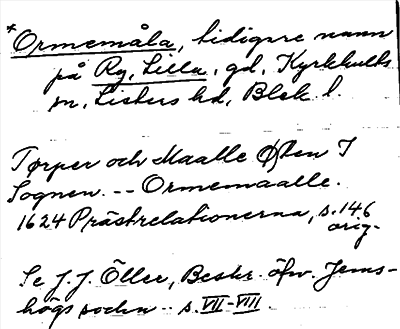 *Ormemåla, tidigare namn
på Ry, Lilla, gd, Kyrkhults
sn, Listers hd, Blek. l.
Tørper och Maalle Østen I
Sognen. -- Ormemaalle.
1624 Prästrelationerna, s. 146
orig.
Se J. J. Öller, Beskr. öfv. Jems-
högs socken s. VII-VIII.